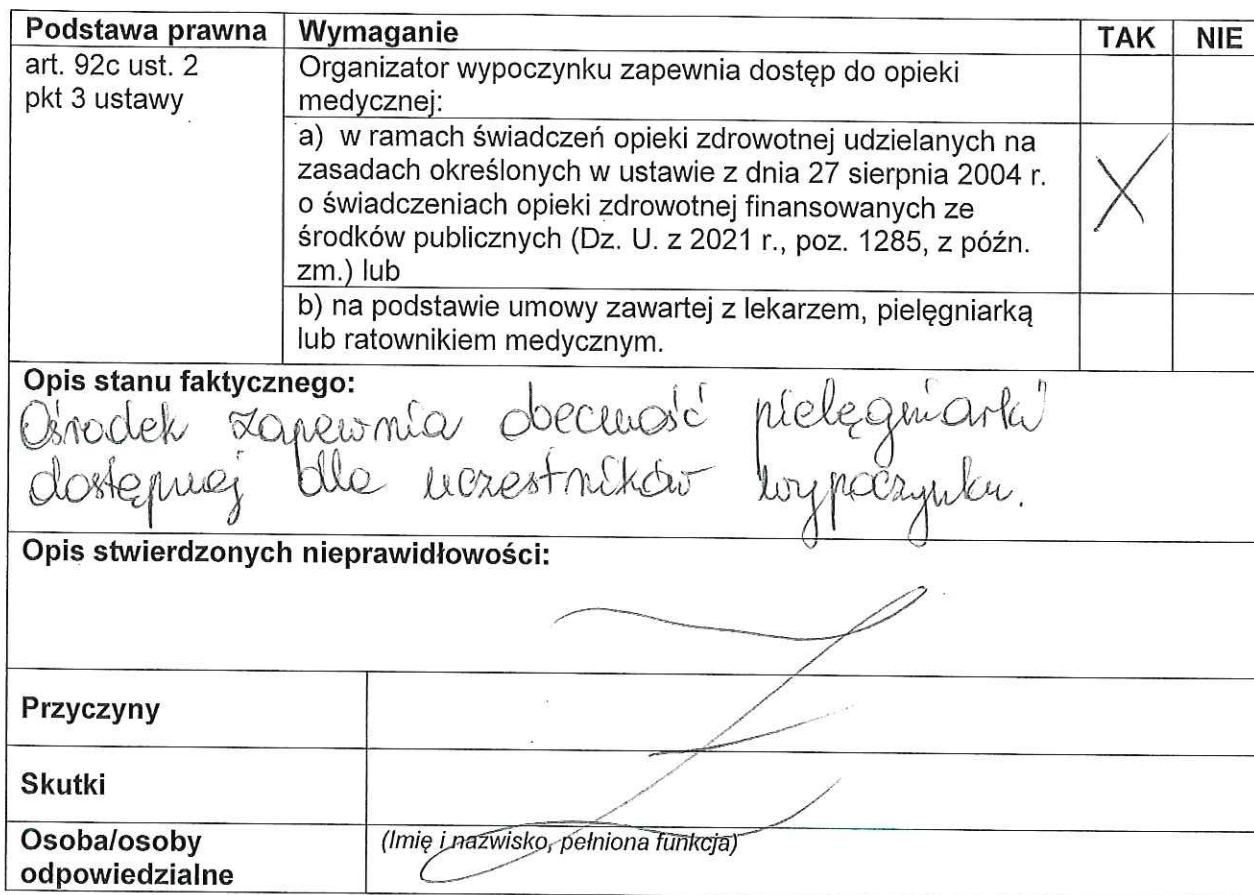 Podstawa prawna Wymaganie TAK NIE
art. 92c ust. 2
pkt 3 ustawy
Organizator wypoczynku zapewnia dostęp do opieki
medycznej:
a) w ramach świadczeń opieki zdrowotnej udzielanych na
zasadach określonych w ustawie z dnia 27 sierpnia 2004 r.
o świadczeniach opieki zdrowotnej finansowanych ze
środków publicznych (Dz. U. z 2021 r., poz. 1285, z późn.
zm.) lub
X
b) na podstawie umowy zawartej z lekarzem, pielęgniarką
lub ratownikiem medycznym.
Opis stanu faktycznego:
Ośrodek zapewnia obecność pielęgniarki
dostępnej dla uczestników wypoczynku.
Opis stwierdzonych nieprawidłowości:
Przyczyny
Skutki
Osoba/osoby
odpowiedzialne
(Imię i nazwisko, pełniona funkcja)